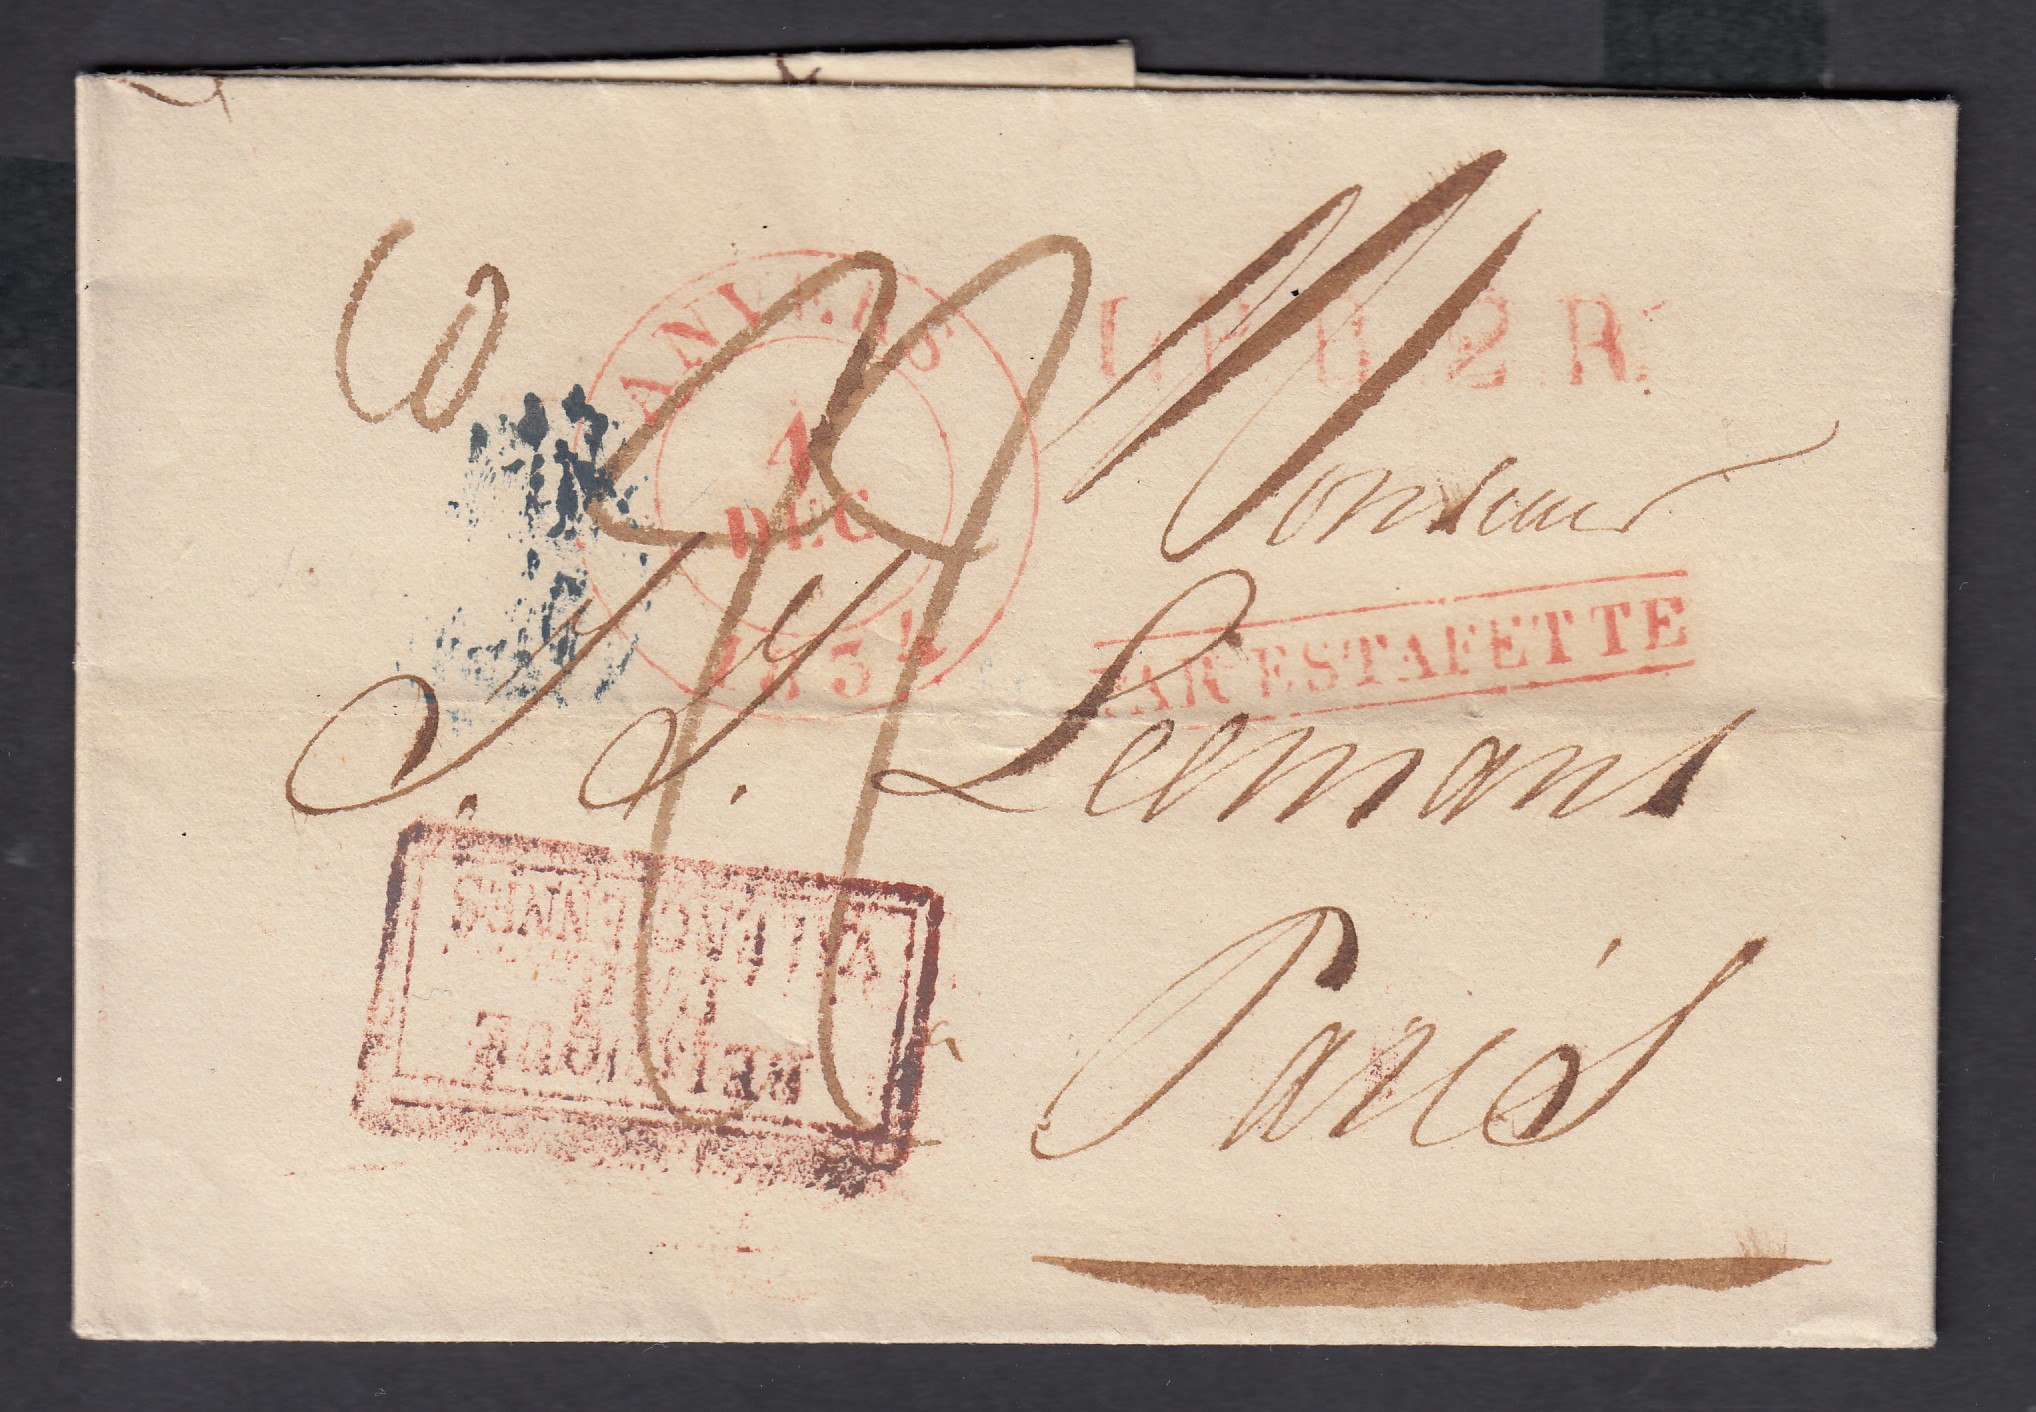 ANVERS
1
DEC
1834
L.F.B.2.R.
Monsieur
PAR ESTAFETTE
J. J. Leemans
BELGIQUE
PAR
VALENCIENNES
a
Paris